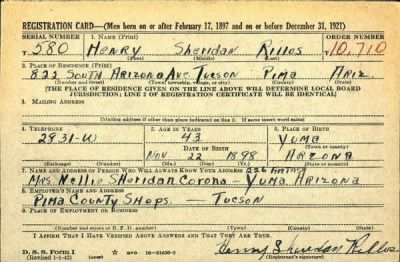 REGISTRATION CARD—(Men born on or after February 17, 1897 and on or before December 31, 1921)
SERIAL NUMBER 1. NAME (Print) ORDER NUMBER
T 580 Henry Sheridan Rillos T10,710
(First) (Middle) (Last)
2. PLACE OF RESIDENCE (Print)
822 South Arizona Ave. Tucson Pima Ariz.
(Number and street) (Town, township, village, or city) (County) (State)
[THE PLACE OF RESIDENCE GIVEN ON THE LINE ABOVE WILL DETERMINE LOCAL BOARD
JURISDICTION; LINE 2 OF REGISTRATION CERTIFICATE WILL BE IDENTICAL]
3. MAILING ADDRESS
[Mailing address if other than place indicated on line 2. If same insert word same]
4. TELEPHONE 5. AGE IN YEARS 6. PLACE OF BIRTH
2931-W 43 Yuma
DATE OF BIRTH (Town or county)
Nov. 22 1898 Arizona
(Exchange) (Number) (Mo.) (Day) (Yr.) (State or country)
7. NAME AND ADDRESS OF PERSON WHO WILL ALWAYS KNOW YOUR ADDRESS 226
Mrs. Nellie Sheridan Corona - Yuma, Arizona
8. EMPLOYER'S NAME AND ADDRESS
Pima County Shops. - Tucson
9. PLACE OF EMPLOYMENT OR BUSINESS
(Number and street or R. F. D. number) (Town) (County) (State)
I AFFIRM THAT I HAVE VERIFIED ABOVE ANSWERS AND THAT THEY ARE TRUE.
D. S. S. Form 1 Henry Sheridan Rillos
(Revised 1-1-42) (over) GPO 16-21630-2 (Registrant's signature)